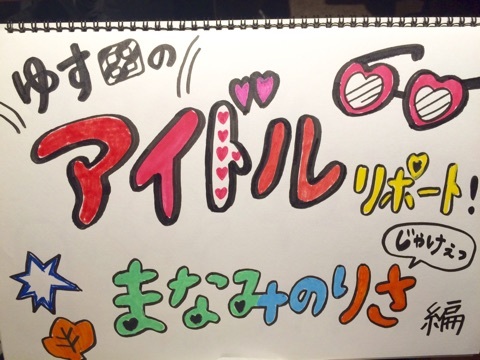 ゆす の
アイドル
リポート!
じゃけぇっ
まなみのりさ
編